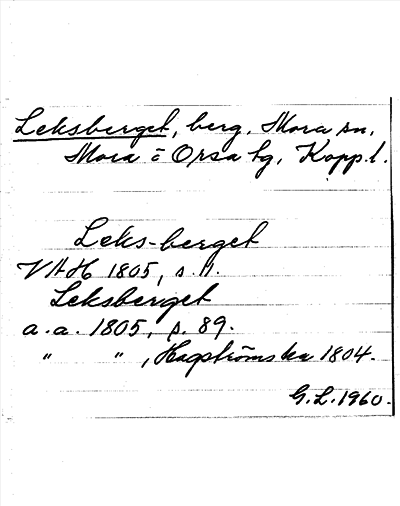 Leksberget, berg, Mora sn,
Mora o Orsa tg, Kopp.l.
Leks-berget
VAH 1805, s. 11.
Leksberget
a.a. 1805, s. 89.
" " , Hagströmska 1804.
G.L. 1960.